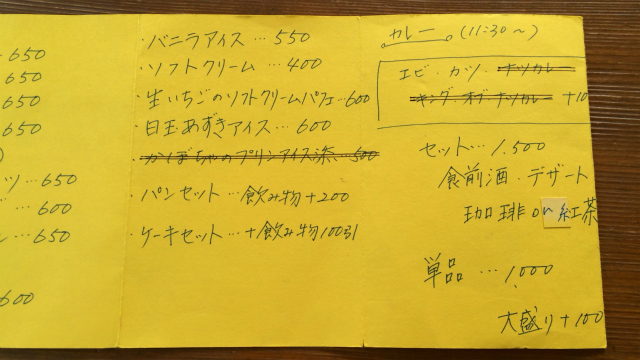 650
650
650
650
ツ…650
…600
…650
600
・バニラアイス…550
・ソフトクリーム…400
・生いちごのソフトクリームパフェ…600
・白玉あずきアイス…600
・かぼちゃのプリンアイス添…500
・パンセット…飲み物+200
・ケーキセット…+飲み物100引
カレー(11:30〜)
エビ・カツ・ナツカレー
キング オブ ナツカレー +10
セット…1,500
食前酒・デザート
珈琲 or 紅茶
単品…1,000
大盛り+100